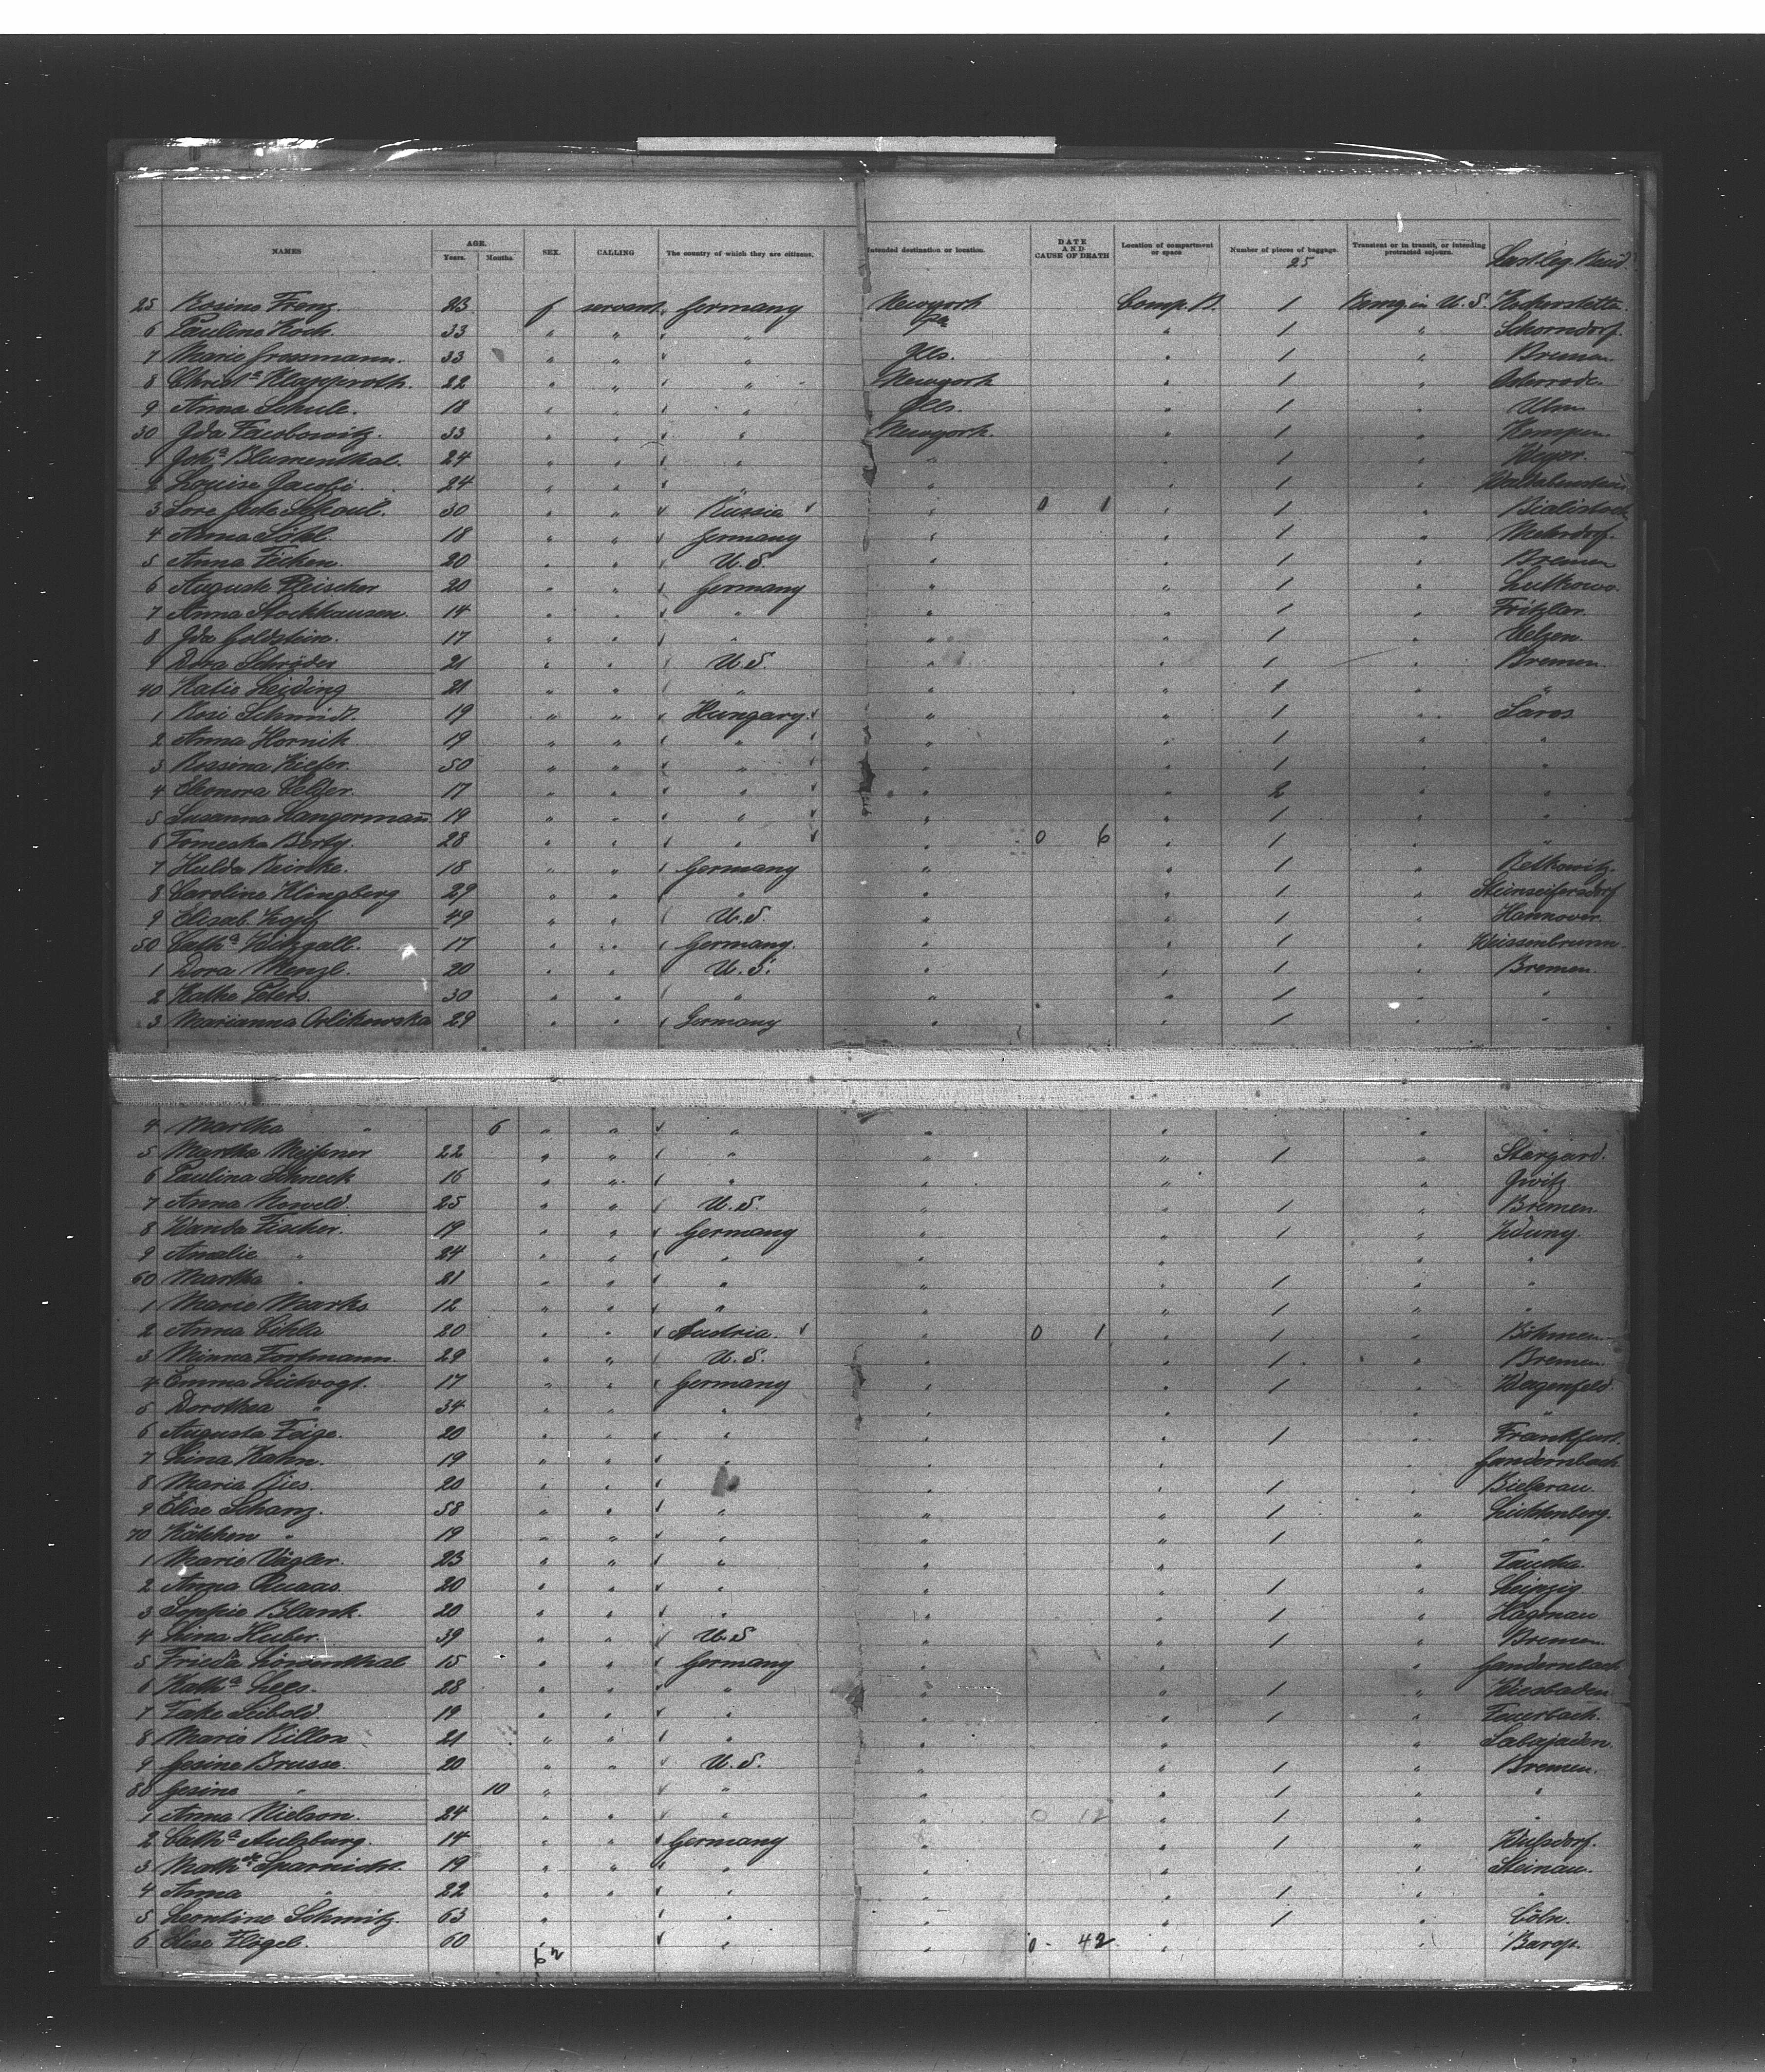 NAMES AGE. Years. Months SEX. CALLING The country of which they are citizens. Intended destination or location. DATE AND CAUSE OF DEATH Location of compartment or space Number of pieces of baggage. Transient or in transit, or intending protracted sojourn. Last leg. Resid.
25
25 Rosine Frenz 23 f servant Germany Newyork Comp. D. 1 Remg in U.S.
6 Pauline Koch. 33 " " " Pa " 1 " Schorndorf.
7 Marie Grossmann. 33 " " " Ills. " 1 " Bremen
8 Christa Klapproth. 22 " " " Newyork " 1 " Osterrode.
9 Anna Schule. 18 " " " Ills. " 1 " Ulm
30 Ida 33 " " " Newyork. " 1 " Kempen
1 Joha Blumenthal. 24 " " " " " 1 " Meyer.
2 Louise Jacobi. 24 " " " " " 1 "
3 30 " " Russia " 0 1 " 1 " Bialistock
4 Anna Söhl. 18 " " Germany " " 1 "
5 Anna Ficken. 20 " " U.S. " " 1 " Bremen
6 Auguste Fleischer 20 " " Germany " " 1 " Lutkowo.
7 Anna Stockhausen. 14 " " " " " 1 " Fritzlar.
8 Ida Goldstein. 17 " " " " " 1 " Uelzen.
9 Dora Schröder 21 " " U.S. " " 1 " Bremen
40 Katie Leiding 21 " " " " " 1 " "
1 Rosi Schmidt. 19 " " Hungary. " " 1 " Saros
2 Anna Hornik 19 " " " " " 1 " "
3 Rossina Kiefer. 50 " " " " " 1 " "
4 Eleonora Celder. 17 " " " " " 2 " "
5 Susanna Langermañ. 19 " " " " " 1 " "
6 Tomecka Berty. 28 " " " " 0 6 " 1 " "
7 Hulda Reinke. 18 " " Germany " " 1 " Relkowitz.
8 Caroline Klingberg 29 " " " " " 1 " Steinseifersdorf
9 Elisab. Kopf 49 " " U.S. " " 1 " Hannover.
50 Catha Witzgall. 17 " " Germany. " " 1 " Weissenbrunn.
1 Dora Menzl. 20 " " U.S. " " 1 " Bremen.
2 Kathe Peters. 30 " " " " " 1 " "
3 Marianna Orlikowska 29 " " Germany " " 1 " "
4 Martha " 6 " " " " " " "
5 Martha Meißner 22 " " " " " 1 " Stargard.
6 Paulina Schneck 16 " " " " " "
7 Anna Noweld. 25 " " U.S. " " 1 " Bremen.
8 Wanda Fischer. 19 " " Germany " " 1 "
9 Amalie " 24 " " " " " " "
60 Martha " 21 " " " " " 1 " "
1 Marie Marks 12 " " " " " 1 " "
2 Anna Cihla 20 " " Austria. " 0 1 " 1 " Böhmen.
3 Minna Fortmann. 29 " " U.S. " " 1 " Bremen.
4 Emma Lüdvogt. 17 " " Germany " " 1 " Wagenfeld
5 Dorothea " 34 " " " " " " "
6 Augusta Feige. 20 " " " " " 1 " Frankfurt.
7 Lina Kahn. 19 " " " " " "
8 Maria Ries 20 " " " " " 1 " Bielerau.
9 Elise Schanz. 58 " " " " " 1 " Lichtenberg.
70 Kätchen " 19 " " " " " 1 " "
1 Marie Vögler. 23 " " " " " " Taucha.
2 Anna Quaas. 20 " " " " " 1 " Leipzig
3 Sophie Blank. 20 " " " " " 1 " Hagenau
4 Lina Huber. 39 " " U.S " " 1 " Bremen
5 Frieda Löwenthal 15 " " Germany " " "
6 Katha Lees. 28 " " " " " 1 " Wiesbaden
7 Seibold. 19 " " " " " 1 " Feuerbach.
8 Marie 21 " " " " " "
9 Gesine Brusse. 20 " " U.S. " " 1 " Bremen.
80 Gesine " 10 " " " " 1 " "
1 Anna Nielson. 24 " " " " 0 12 " 1 " "
2 Catha Aulzburg. 14 " " Germany " " 1 " Wulsdorf.
3 19 " " " " " " Steinau.
4 Anna " 22 " " " " " 1 " "
5 Leontine Schmitz. 63 " " " " 1 " Cöln.
6 Elise Flögel. 60 " " " 0 - 42 " " Barop.
62